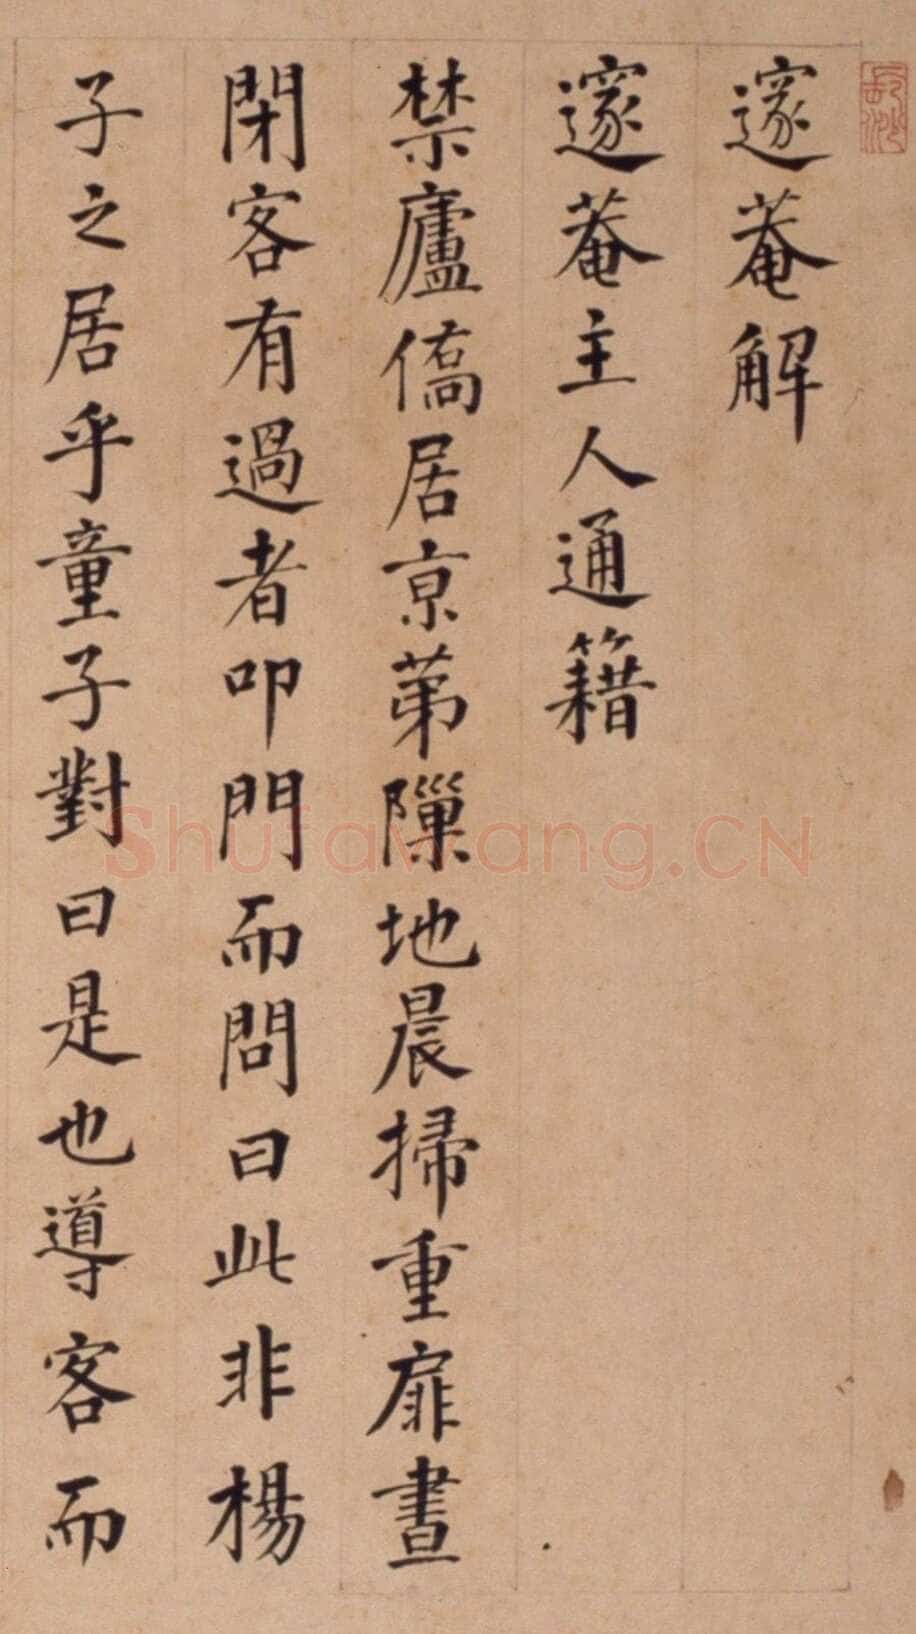 邃菴解
邃菴主人通籍
禁廬僑居京第隟地晨掃重扉晝
閉客有過者叩門而問曰此非楊
子之居乎童子對曰是也導客而
Shufawang.CN